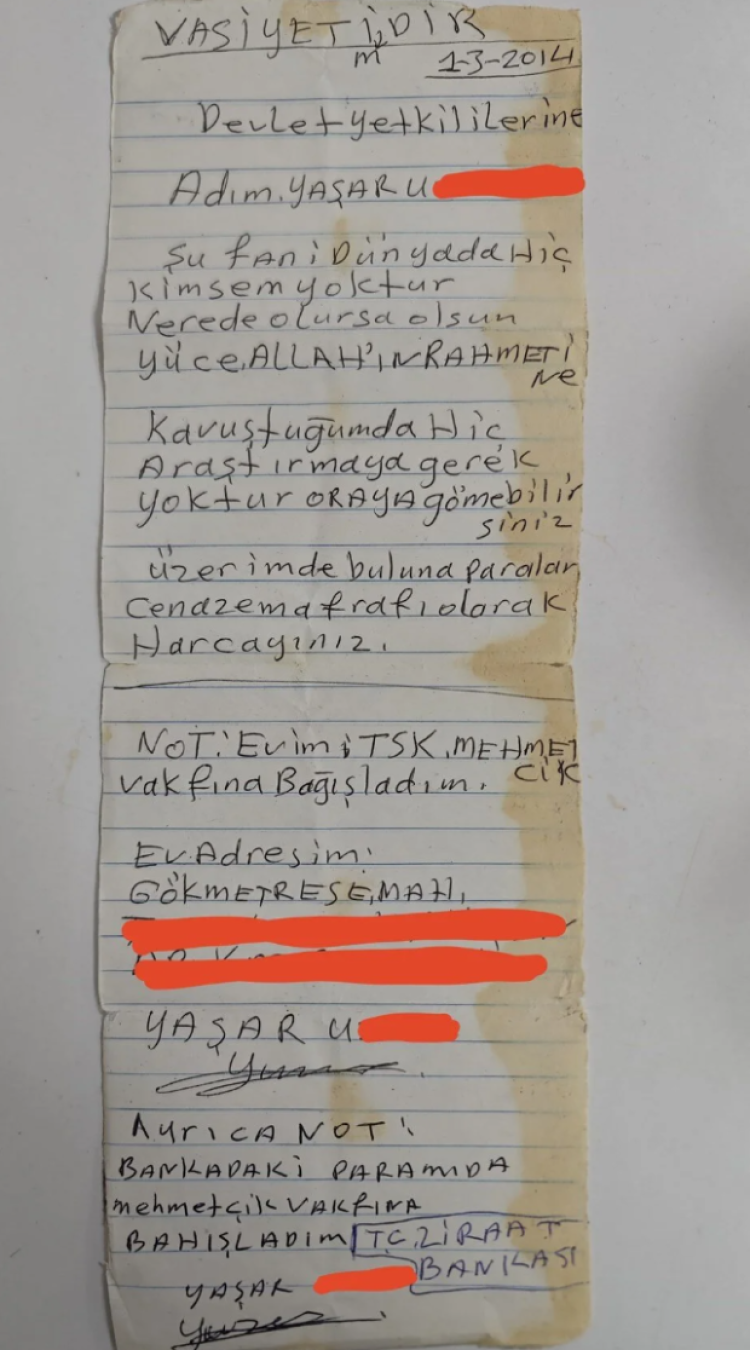 VASİYETİMDİR
1-3-2014
Devlet yetkililerine
Adım. YAŞAR U
Şu fani Dünyada Hiç
kimsem yoktur
Nerede olursa olsun
yüce. ALLAH'IN RAHMETİ
Ne
Kavuştuğumda Hiç
Araştırmaya gerek
yoktur ORAYA gömebilir
siniz
üzerimde buluna paraları
Cenazema frafı olarak
Harcayınız.
NOT: Evimi TSK. MEHMET
CİK
vakfına Bağışladım.
Ev. Adresim:
GÖKMETRESE. MAH.
YAŞAR U
Ayrıca NOT:
BANKADAKİ PARAMIDA
mehmetçik VAKFINA
BAHIŞLADIM TC. ZİRAAT
BANKASI
YAŞAR